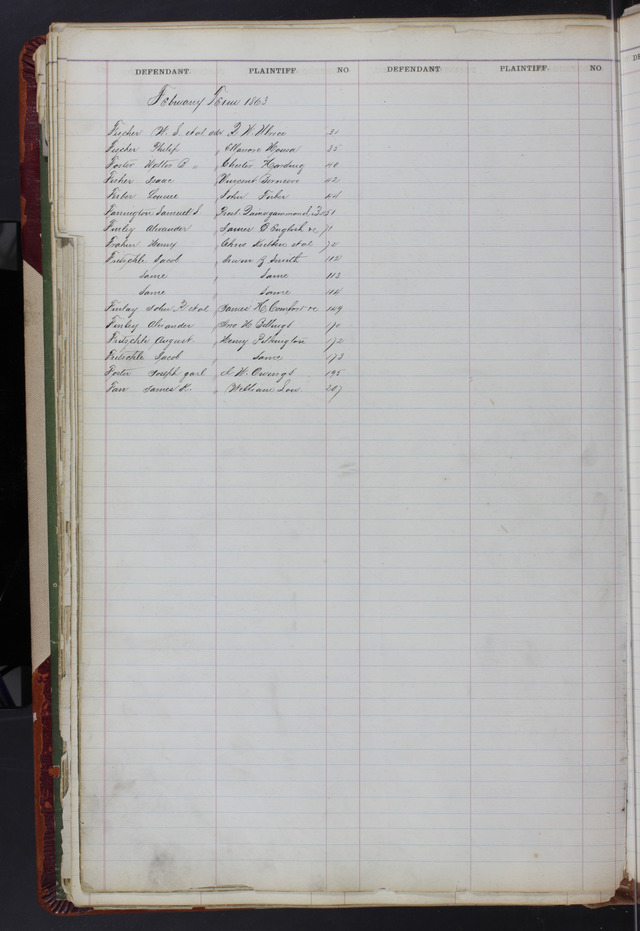 DEFENDANT PLAINTIFF NO. DEFENDANT PLAINTIFF. NO.
February Term 1863
Fischer W. S. et al ads F. W. 31
Fischer Philip " 35
Foster Walter B. " Charles Harding 40
Fisher Isaac " Vincent 42
Ferber Louise " John Ferber 44
Farrington Samuel S. 51
Finley Alexander " James E English &c 71
Frohn Henry " Chris et al 72
Fritschle Jacob " Irwin Z Smith 112
Same " Same 113
Same " Same 114
Finlay John F. et al " James H. Comfort &c 149
Finley Alexander " Jno H Billings 170
Fritschle August " Henry Pilkington 172
Fritschle Jacob " Same 173
Foster Joseph garl " I. W. Owings 195
Farr James K. " William Low 207